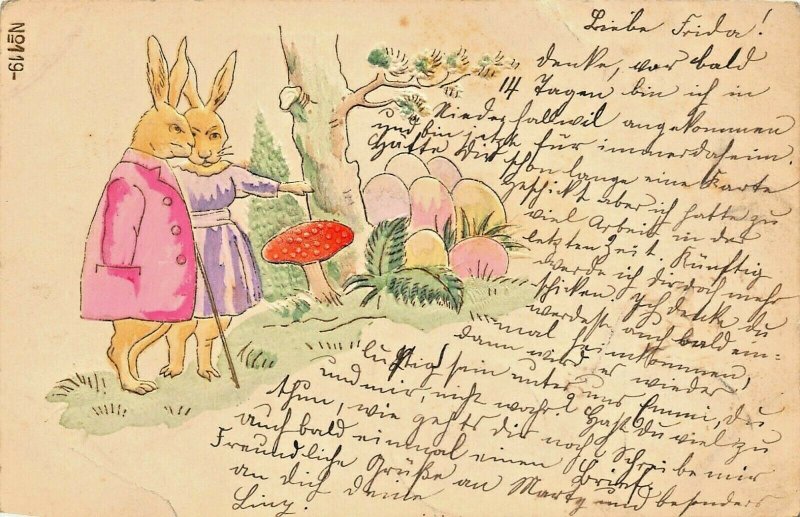 No 119-
Liebe Frida!
denke, vor bald
14 Tagen bin ich in
Niederhallwil angekommen
und bin jetzt für immer daheim.
Hätte Dir schon lange eine Karte
geschickt aber ich hatte zu
viel Arbeit in der
letzten Zeit. Künftig
werde ich dir doch mehr
schicken. Ich denke du
werdest auch bald ein-
mal heimkommen,
dann wird es wieder
lustig sein unter uns Emmi, du
und mir, nicht wahr? Hast du viel zu
thun, wie geht's dir noch? Schreibe mir
auch bald einmal einen Brief.
Freundliche Grüße an Marty und besonders
an dich deine
Liny.